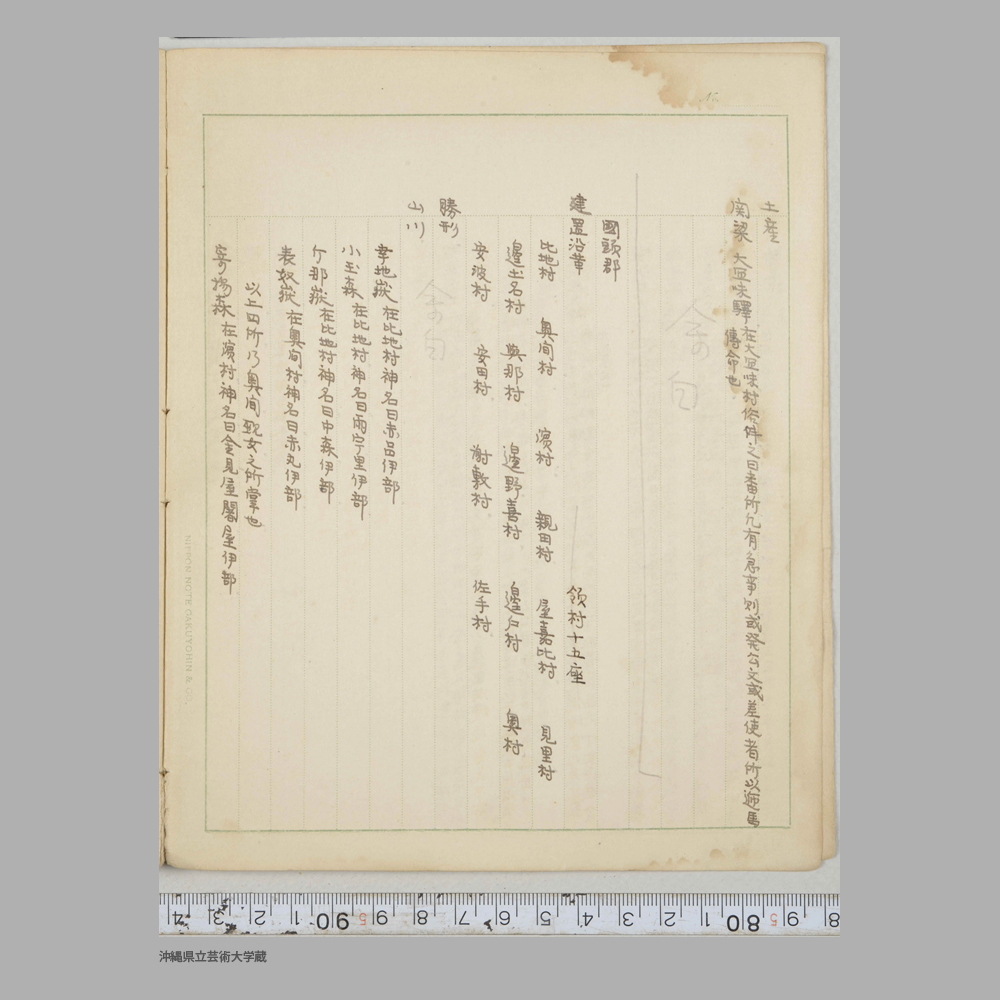 土産
関梁 大宜味驛 在大宜味村俗件之曰番所凡有急事則或発公文或差使者所以逓馬
傳命也
余白
國頭郡
建置沿革 領村十五座
比地村 奥间村 濱村 親田村 屋嘉比村 見里村
邉土名村 與那村 邉野喜村 邉戸村 奥村
安波村 安田村 謝敷村 佐手村
余白
勝形
山川
幸地嶽 在比地村神名曰赤呂伊部
小玉森 在比地村神名曰雨宁里伊部
ケ那嶽 在比地村神名曰中森伊部
表奴嶽 在奥间村神名曰赤丸伊部
以上四所乃奥间 女之所掌也
寄揚森 在濱村神名曰金見屋 屋伊部
NIPPON NOTE GAKUYOHIN & CO.
4 3 2 1 90 5 9 8 7 6 5 4 3 2 1 80 5 9 8
沖縄県立芸術大学蔵